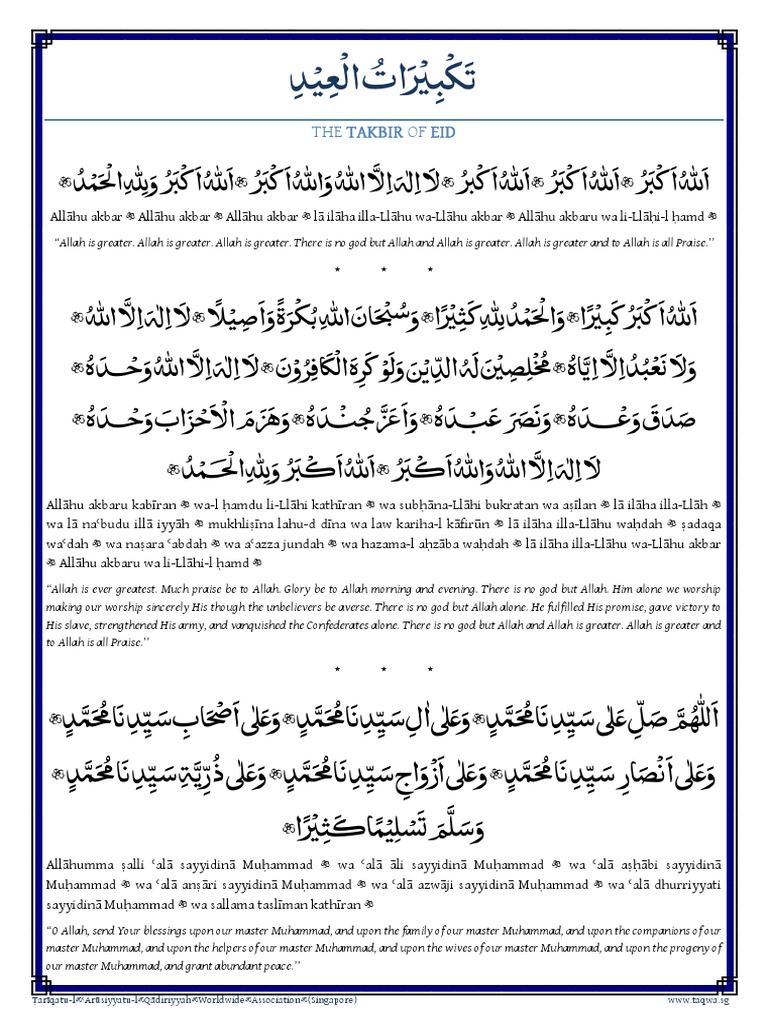 تَكْبِيْرَاتُ الْعِيْدِ
THE TAKBIR OF EID
اَللهُ اَكْبَرُ ۞ اَللهُ اَكْبَرُ ۞ اَللهُ اَكْبَرُ ۞ لَا اِلٰهَ اِلَّا اللهُ وَاللهُ اَكْبَرُ ۞ اَللهُ اَكْبَرُ وَلِلهِ الْحَمْدُ ۞
Allāhu akbar ۞ Allāhu akbar ۞ Allāhu akbar ۞ lā ilāha illa-Llāhu wa-Llāhu akbar ۞ Allāhu akbaru wa li-Llāḥi-l ḥamd ۞
“Allah is greater. Allah is greater. Allah is greater. There is no god but Allah and Allah is greater. Allah is greater and to Allah is all Praise.’’
* * *
اَللهُ اَكْبَرُ كَبِيْرًا ۞ وَالْحَمْدُ لِلهِ كَثِيْرًا ۞ وَسُبْحَانَ اللهِ بُكْرَةً وَاَصِيْلًا ۞ لَا اِلٰهَ اِلَّا اللهُ ۞
وَلَا نَعْبُدُ اِلَّا اِيَّاهُ ۞ مُخْلِصِيْنَ لَهُ الدِّيْنَ وَلَوْ كَرِهَ الْكَافِرُوْنَ ۞ لَا اِلٰهَ اِلَّا اللهُ وَحْدَهُ ۞
صَدَقَ وَعْدَهُ ۞ وَنَصَرَ عَبْدَهُ ۞ وَاَعَزَّ جُنْدَهُ ۞ وَهَزَمَ الْاَحْزَابَ وَحْدَهُ ۞
لَا اِلٰهَ اِلَّا اللهُ وَاللهُ اَكْبَرُ ۞ اَللهُ اَكْبَرُ وَلِلهِ الْحَمْدُ ۞
Allāhu akbaru kabīran ۞ wa-l ḥamdu li-Llāhi kathīran ۞ wa subḥāna-Llāhi bukratan wa aṣīlan ۞ lā ilāha illa-Llāh ۞
wa lā naʿbudu illā iyyāh ۞ mukhliṣīna lahu-d dīna wa law kariha-l kāfirūn ۞ lā ilāha illa-Llāhu waḥdah ۞ ṣadaqa
waʿdah ۞ wa naṣara ʿabdah ۞ wa aʿazza jundah ۞ wa hazama-l aḥzāba waḥdah ۞ lā ilāha illa-Llāhu wa-Llāhu akbar
۞ Allāhu akbaru wa li-Llāhi-l ḥamd ۞
“Allah is ever greatest. Much praise be to Allah. Glory be to Allah morning and evening. There is no god but Allah. Him alone we worship
making our worship sincerely His though the unbelievers be averse. There is no god but Allah alone. He fulfilled His promise, gave victory to
His slave, strengthened His army, and vanquished the Confederates alone. There is no god but Allah and Allah is greater. Allah is greater and
to Allah is all Praise.’’
* * *
اَللّٰهُمَّ صَلِّ عَلٰى سَيِّدِنَا مُحَمَّدٍ ۞ وَعَلٰى اٰلِ سَيِّدِنَا مُحَمَّدٍ ۞ وَعَلٰى اَصْحَابِ سَيِّدِنَا مُحَمَّدٍ ۞
وَعَلٰى اَنْصَارِ سَيِّدِنَا مُحَمَّدٍ ۞ وَعَلٰى اَزْوَاجِ سَيِّدِنَا مُحَمَّدٍ ۞ وَعَلٰى ذُرِّيَّةِ سَيِّدِنَا مُحَمَّدٍ ۞
وَسَلَّمَ تَسْلِيْمًا كَثِيْرًا ۞
Allāhumma ṣalli ʿalā sayyidinā Muḥammad ۞ wa ʿalā āli sayyidinā Muḥammad ۞ wa ʿalā aṣḥābi sayyidinā
Muḥammad ۞ wa ʿalā anṣāri sayyidinā Muḥammad ۞ wa ʿalā azwāji sayyidinā Muḥammad ۞ wa ʿalā dhurriyyati
sayyidinā Muḥammad ۞ wa sallama taslīman kathīran ۞
“O Allah, send Your blessings upon our master Muhammad, and upon the family of our master Muhammad, and upon the companions of our
master Muhammad, and upon the helpers of our master Muhammad, and upon the wives of our master Muhammad, and upon the progeny of
our master Muhammad, and grant abundant peace.’’
Ṭarīqatu-l۞ʿArūsiyyatu-l۞Qādiriyyah۞Worldwide۞Association۞(Singapore) www.taqwa.sg